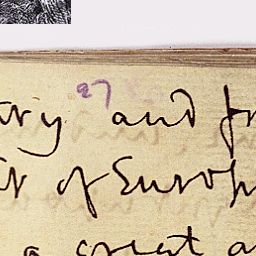 27
and
of Europ
a great a